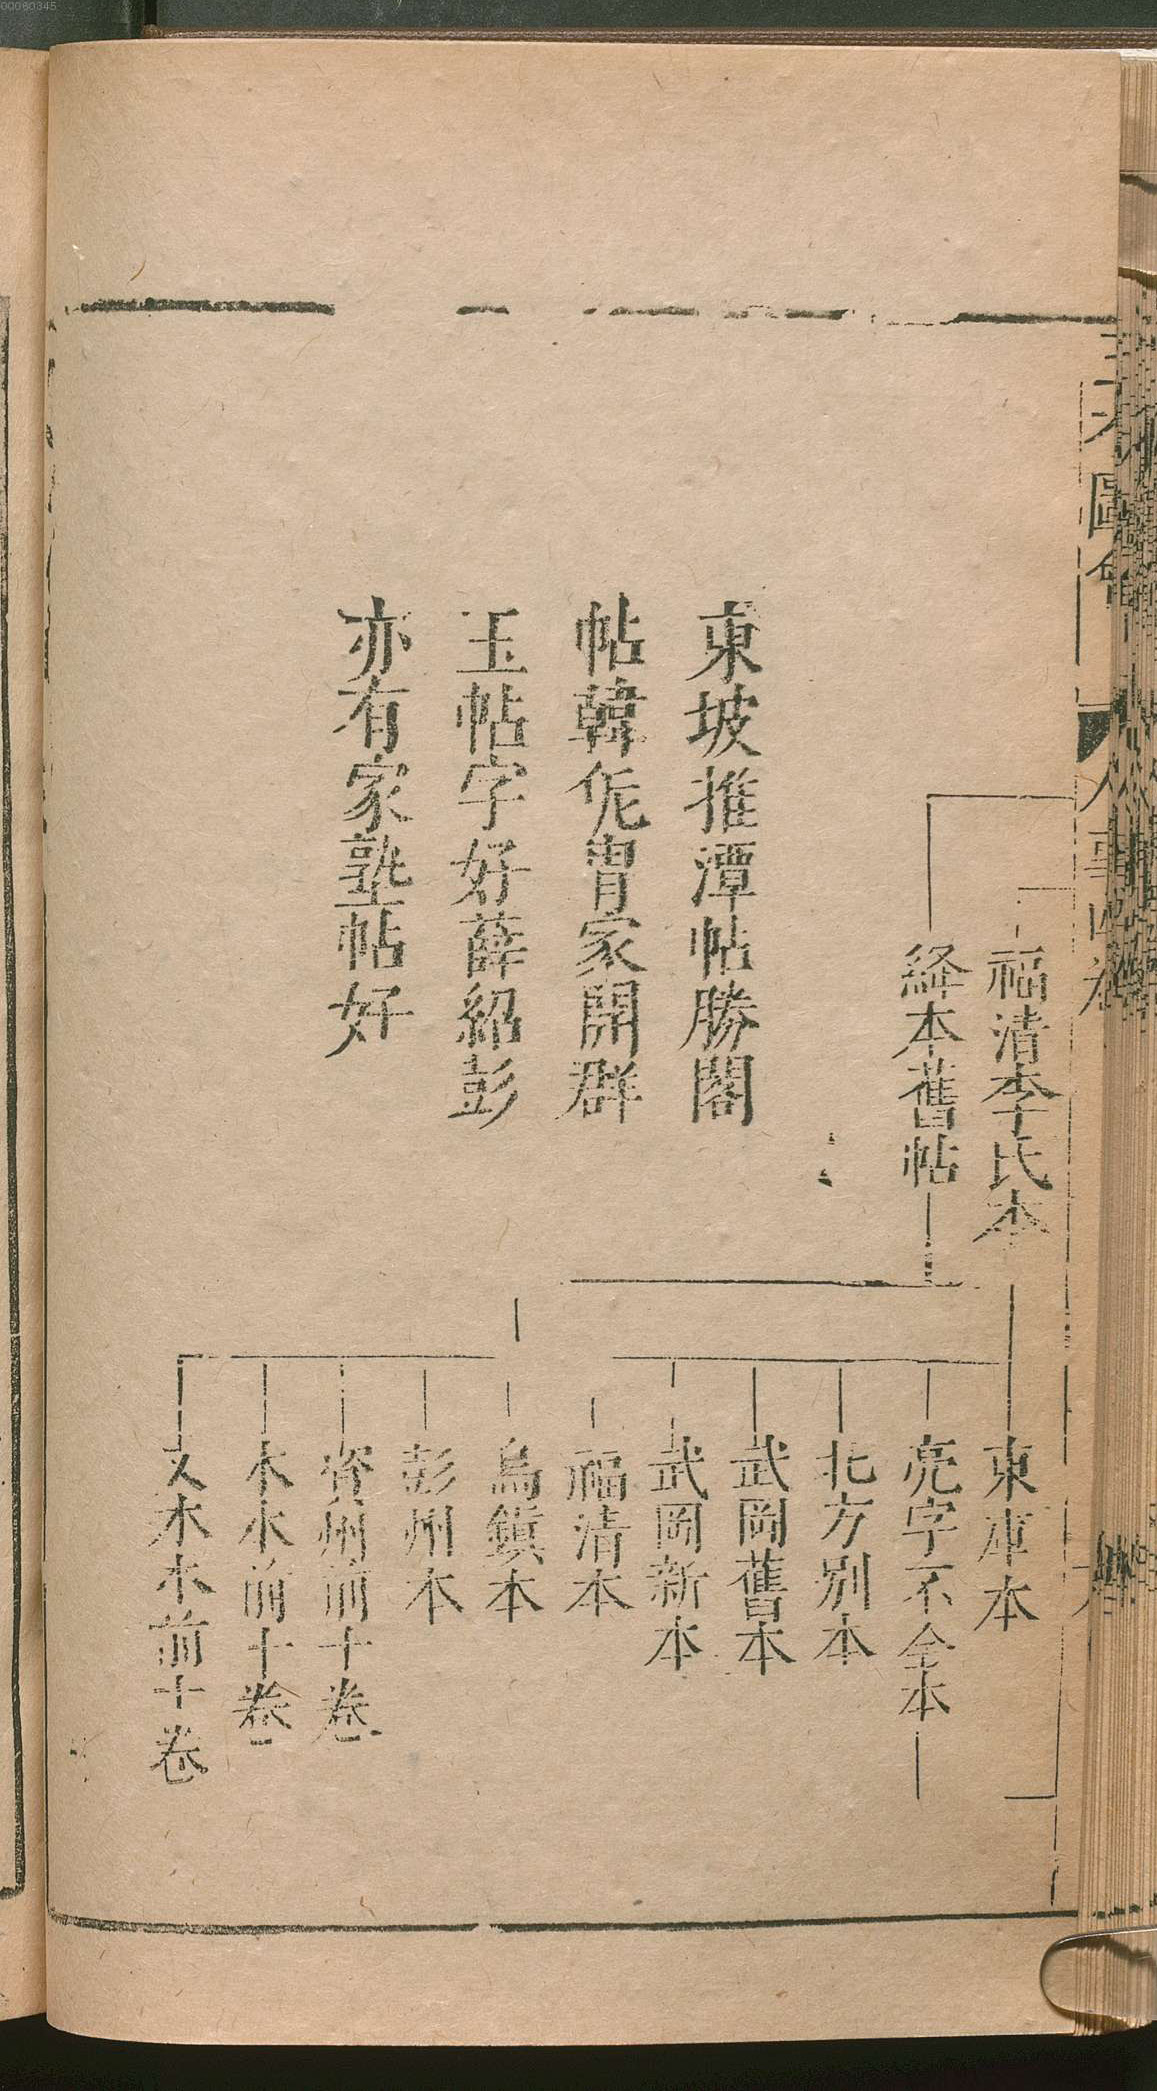 00080345
三才圖會
人事四卷
福清李氏本
絳本舊帖
東坡推潭帖勝閣
帖韓侂冑家開群
玉帖字好薛紹彭
亦有家塾帖好
東庫本
亮字不全本
北方别本
武岡舊本
武岡新本
福清本
烏鎭本
彭州本
資州前十卷
木本前十卷
又木本前十卷